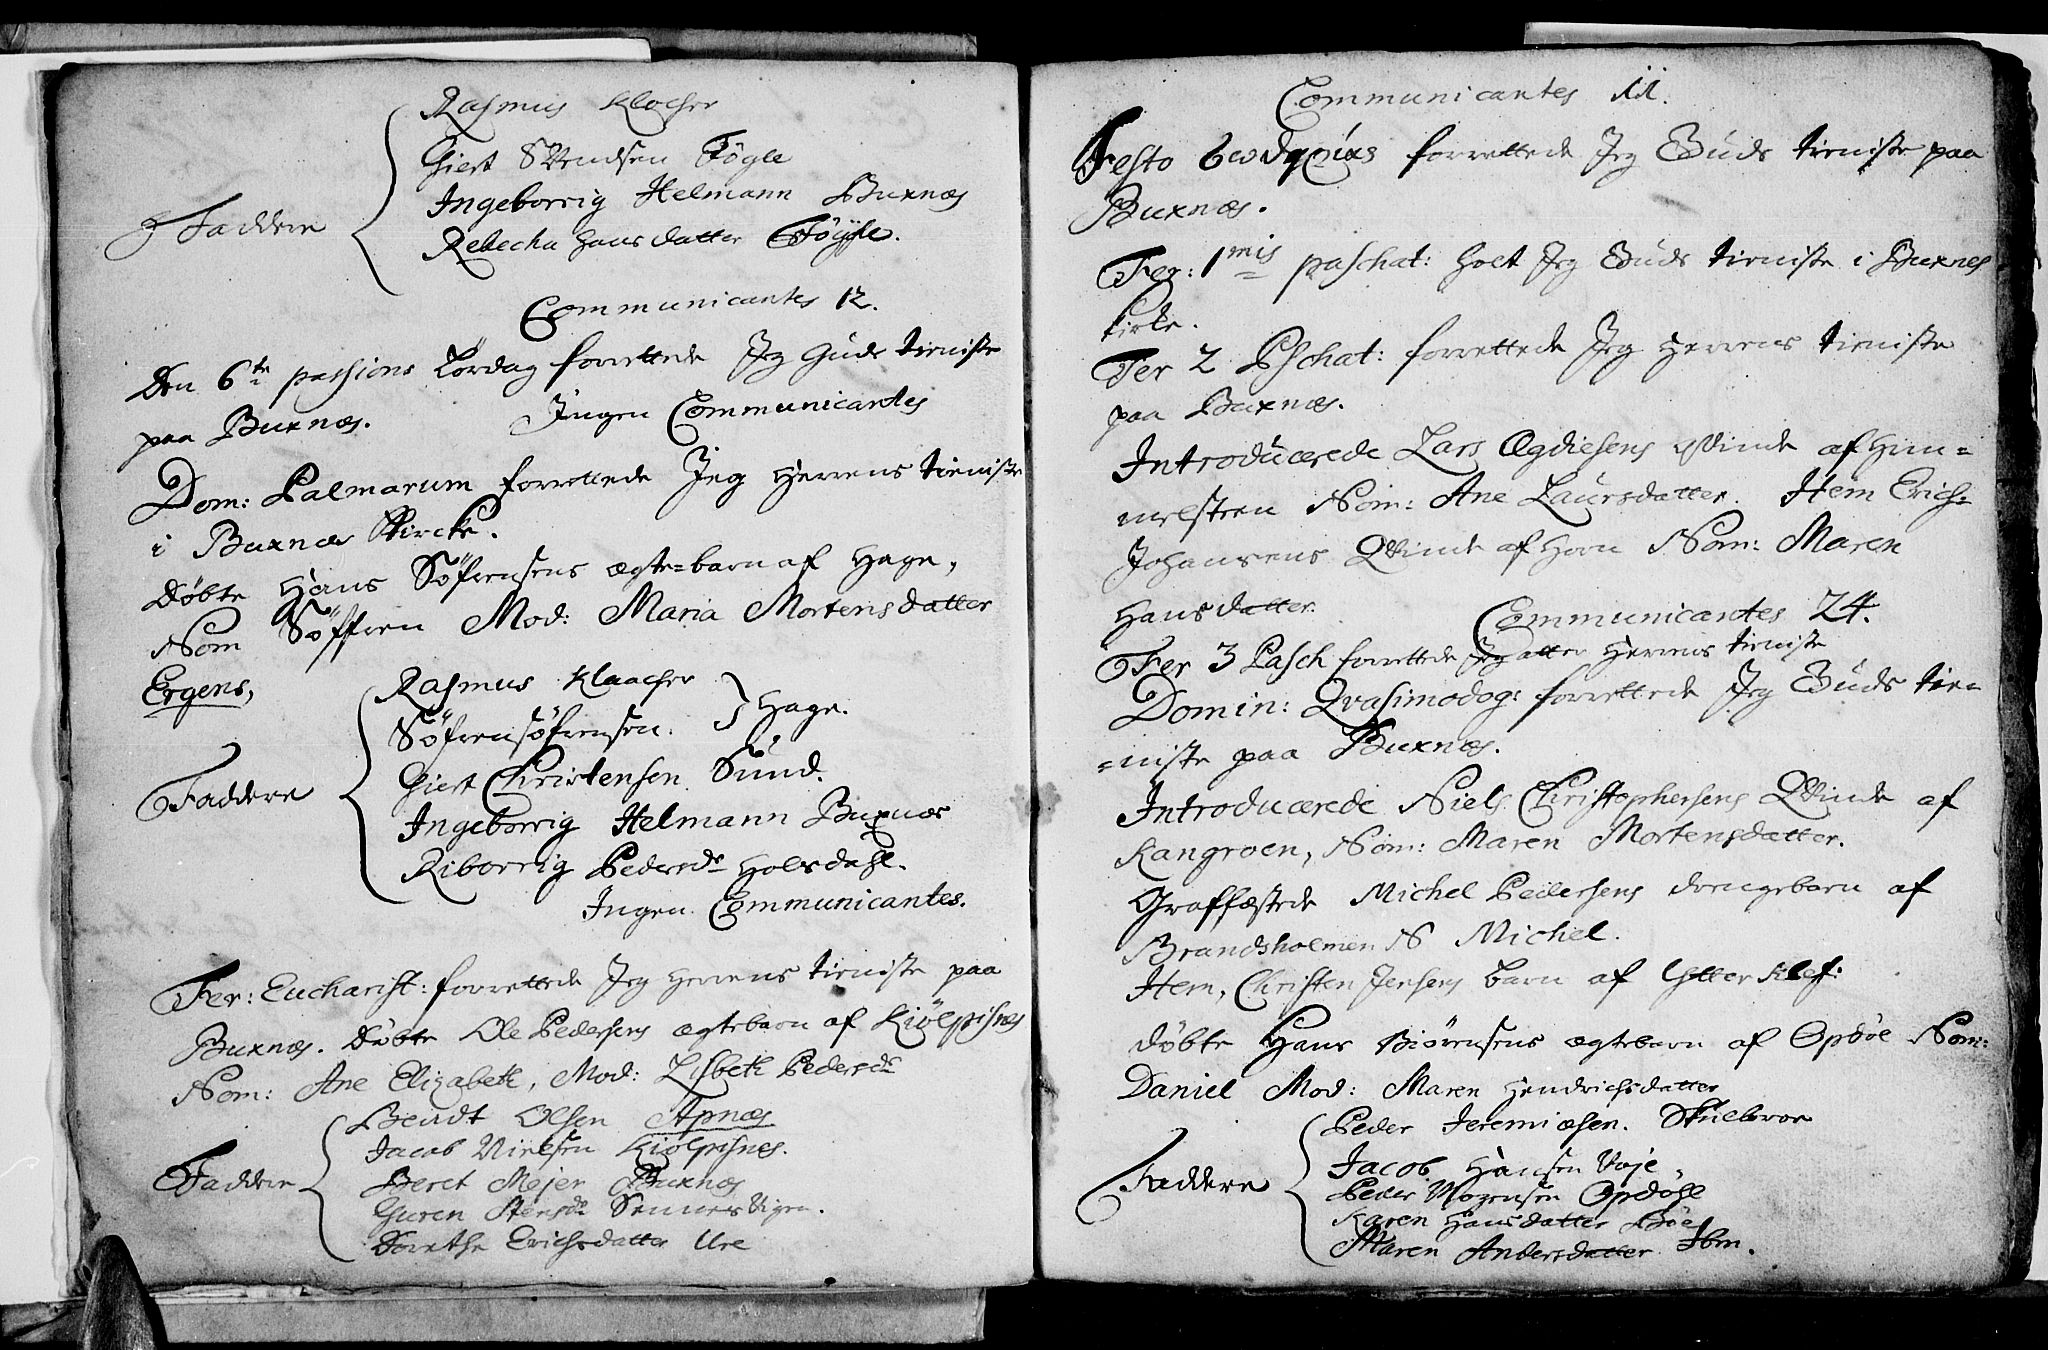 Rasmus Klocher
Giert Svendsen Føgle
Ingeborrig Helmann Buxnæs
Faddere
Rebecha Hansdatter Føyle.
Communicantes 12.
Den 6te passions Lørdag forrettede Jeg Guds tieniste
paa Buxnæs. Ingen Communicantes
Dom: Palmarum forrettede Jeg Herrens tieniste
i Buxnæs Kircke.
Døbte Hans Søfrensens ægte=barn af Hage,
Nom Søffren Mod: Maria Mortensdatter
Ergens,
Rasmus Klaacher
Søfren Søfrensen. } Hage.
Giert Christensen Sund.
Faddere
Ingeborrig Helmann Buxnæs
Riborrig Pedersdr Holsdahl.
Ingen Communicantes.
Fer: Eucharist: forrettede Jeg Herrens tieniste paa
Buxnæs. Døbte Ole Pedersens ægtebarn af Kiølpisnes
Nom: Ane Elizabeth, Mod: Lisbeth Pedersdr
Bendt Olsen Apnæs
Jacob Nielsen Kiølpisnes.
Faddere
Beret Mejer Buxnæs
Guren Stensdr Sennesvigen.
Dorethe Erichsdatter Ure
Communicantes 11.
Festo forrettede Jeg Guds tieniste paa
Buxnæs.
Fer: 1mis paschat: holt Jeg Guds tieniste i Buxnes
kirke.
Fer 2 Pschat: forrettede Jeg Herrens tieniste
paa Buxnæs.
Introducerede Lars Ægdiesens Qvinde af Him=
melsteen Nom: Ane Laursdatter. Item Erich
Johansens Qvinde af Horn Nom: Maren
Hansdatter.
Communicantes 24.
Fer 3 Pasch forrettede Jeg atter Herrens tieniste
Domin: Qvasimodog: forrettede Jeg Guds tie=
=niste paa Buxnæs.
Introducerede Niels Christophersens Qvinde af
Kangroen, Nom: Maren Mortensdatter.
Graffæstede Michel Pedersens drengebarn af
Brandsholmen N Michel.
Item, Christen Jensens barn af Ytter Klef:
Døbte Hans Biørensens ægtebarn af Opdøe Nom:
Daniel Mod: Maren Hendrichsdatter
Peder Jeremiæsen. Skulbroe
Jacob Hansen Voje.
Faddere
Peder Mogensen Opdøhl
Karen Hansdatter Bøe
Maren Andersdatter Ibm.